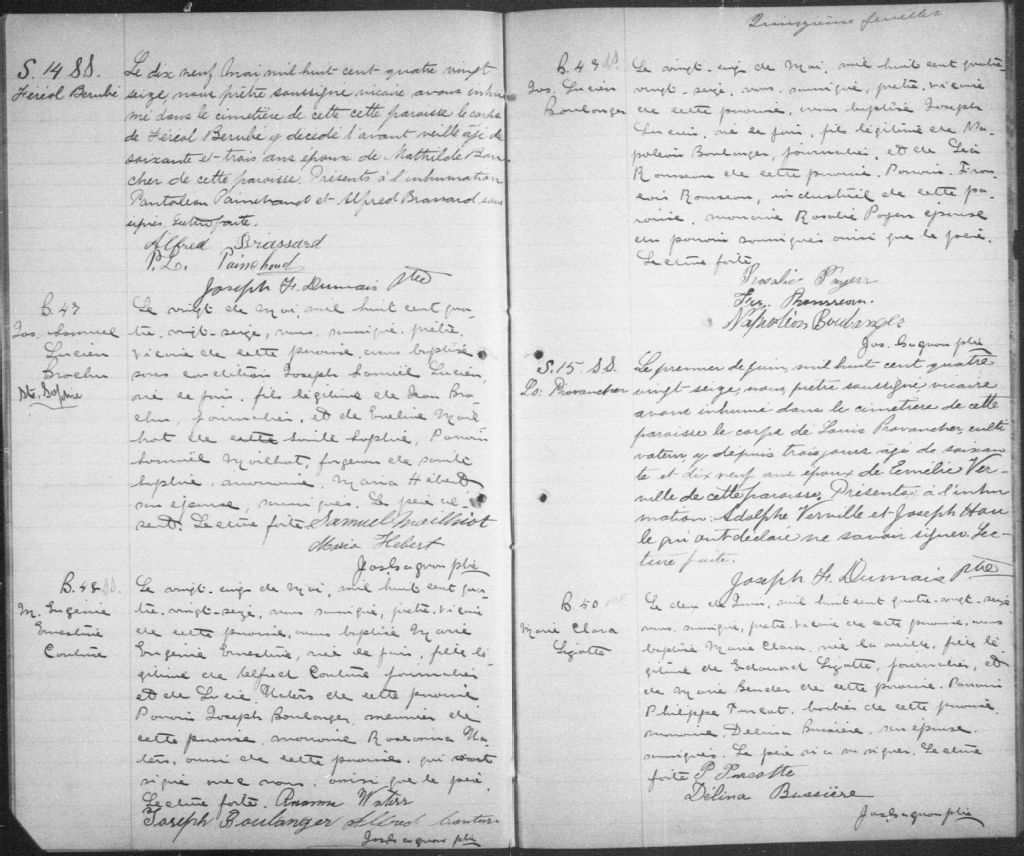 S. 14 SS.
Féréol Berubé
Le dix neuf Mai mil huit cent quatre vingt
seize, nous prêtre soussigné vicaire avons inhu-
mé dans le cimetière de cette cette paroisse le corps
de Féréol Berubé y decedé l'avant veille agé de
soixante et trois ans époux de Mathilde Bou-
cher de cette paroisse. Présents à l'inhumation
Pantaléon Painchaud et Alfred Brassard sous
signés. Lecture faite.
Alfred Brassard
P. L. Painchaud
Joseph F. Dumais ptre
B. 47
Jos. Samuel
Lucien
Brochu
Ste. Sophie
Le vingt de Mai, mil huit cent qua-
tre-vingt-seize, nous, soussigné, prêtre,
vicaire de cette paroisse, avons baptisé
sous condition Joseph Samuel Lucien,
né ce jour, fils légitime de Jean Bro-
chu, journalier, et de Eveline Mail-
hot de cette Sainte Sophie, Parrain
Samuel Mailhot, forgeron de Sainte
Sophie, marraine, Maria Hébert
son épouse, soussignés. Le père
Lecture faite Samuel Mailhiot
Maria Hebert
Jos. Gagnon ptre
B. 48 SS.
M. Eugénie
Ernestine
Couture
Le vingt-cinq de Mai, mil huit cent qua-
tre-vingt-seize, nous soussigné, prêtre, vicaire
de cette paroisse, avons baptisé Marie
Eugénie Ernestine, née ce jour, fille lé-
gitime de Alfred Couture journalier
et de Lucie Waters de cette paroisse
Parrain Joseph Boulanger, menuisier de
cette paroisse. marraine Roseanna Wa-
ters, aussi de cette paroisse, qui ont
signé avec nous, ainsi que le père.
Lecture faite. Waters
Joseph Boulanger Alfred Couture
Jos. Gagnon ptre
Quinzième feuillet
B. 49 SS
Jos. Lucien
Boulanger
Le vingt-cinq de Mai, mil huit cent quatre-
vingt-seize, nous, soussigné, prêtre, vicaire
de cette paroisse, avons baptisé Joseph
Lucien, né ce jour, fils légitime de Na-
poléon Boulanger, journalier, et de
Rousseau de cette paroisse. Parrain,
Rousseau, industriel de cette pa-
roisse, marraine Rosalie Payeur épouse
du parrain soussignés ainsi que le père.
Lecture faite.
Rosalie Payeur
Rousseau.
Napoléon Boulanger
Jos. Gagnon ptre
S. 15 SS.
Ls. Provancher
Le premier de juin, mil huit cent quatre
vingt seize, nous, prêtre soussigné, vicaire
avons inhumé dans le cimetière de cette
paroisse le corps de Louis Provancher, culti
vateur, y depuis trois jours âgé de soixan-
te et dix neuf ans époux de Emélie Ver-
ville de cette paroisse. Présents à l'inhu
mation: Adolphe Verville et Joseph Hou
le qui ont déclaré ne savoir signer. Lec-
ture faite.
Joseph F. Dumais ptre
B. 50
Marie Clara
Lizotte
Le deux de Juin, mil huit cent quatre-vingt-seize
nous, soussigné, prêtre vicaire de cette paroisse, avons
baptisé Marie Clara, née la veille, fille lé-
gitime de Edouard Lizotte, journalier, et
de Marie de cette paroisse. Parrain
Philippe Turcot, barbier de cette paroisse
marraine Délina Buissière, son épouse.
soussignés. Le père n'a su signer. Lecture
faite P Turcotte
Délina Bussière
Jos. Gagnon ptre